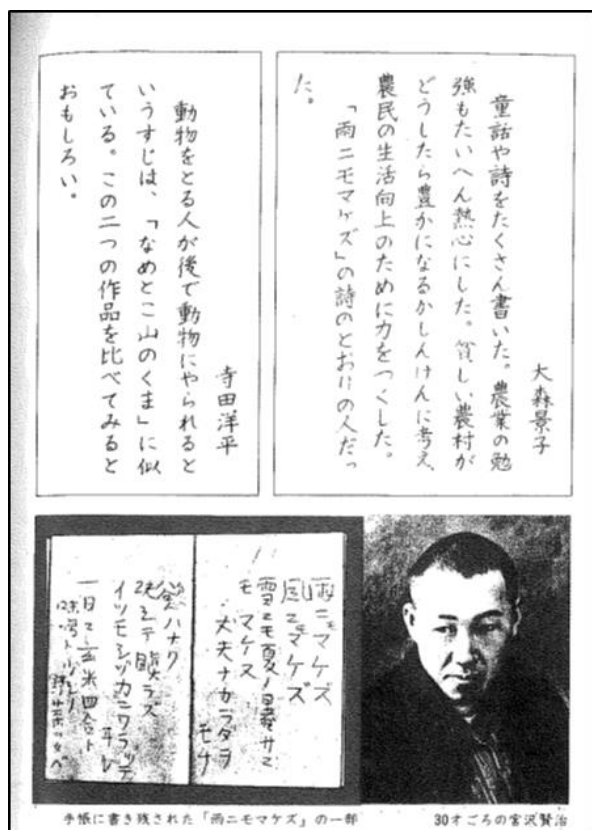 大森景子
童話や詩をたくさん書いた。農業の勉
強もたいへん熱心にした。貧しい農村が
どうしたら豊かになるかしんけんに考え、
農民の生活向上のために力をつくした。
「雨ニモマケズ」の詩のとおりの人だっ
た。
寺田洋平
動物をとる人が後で動物にやられると
いうすじは、「なめとこ山のくま」に似
ている。この二つの作品を比べてみると
おもしろい。
雨ニモマケズ
風ニモマケズ
雪ニモ夏ノ暑サニ
モマケヌ
丈夫ナカラダヲ
モチ
慾ハナク
決シテ瞋ラズ
イツモシヅカニワラッテ
ヰル
一日ニ玄米四合ト
手帳に書き残された「雨ニモマケズ」の一部
30才ごろの宮沢賢治